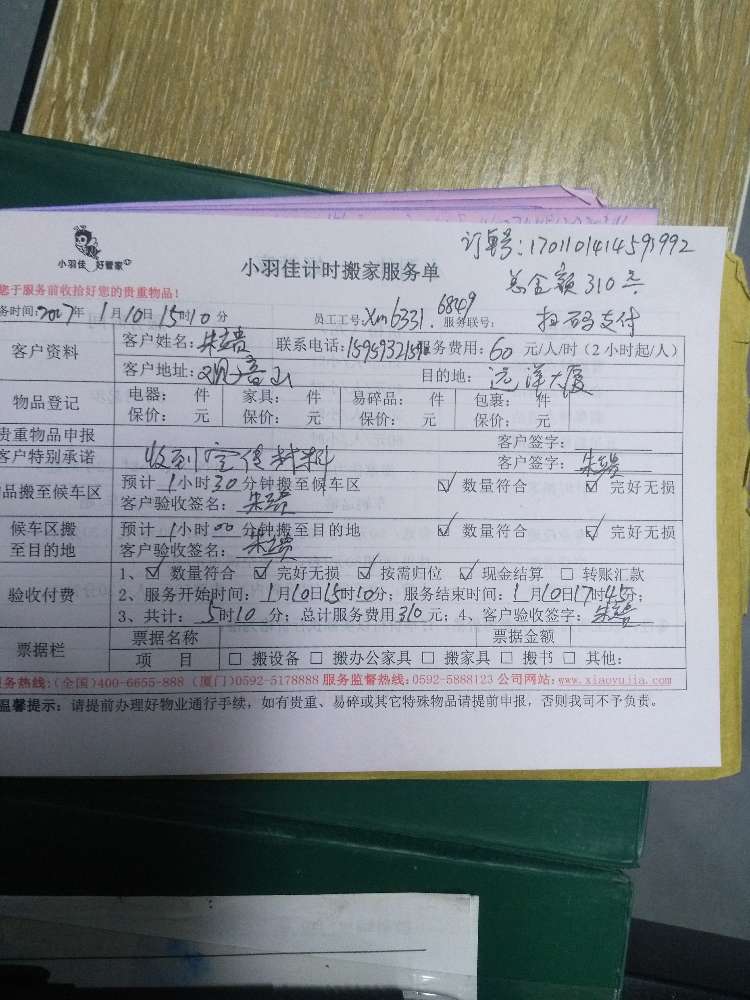 小羽佳 好管家
小羽佳计时搬家服务单
订单号:170110141459992
总金额310元
扫码支付
您于服务前收拾好您的贵重物品!
务时间:2017年1月10日15时10分 员工工号:Xm6331. 6849 服务联号:
客户资料
客户姓名: 联系电话: 服务费用:60元/人/时(2小时起/人)
客户地址:观音山 目的地:远洋大厦
物品登记
电器: 件 家具: 件 易碎品: 件 包裹: 件
保价: 元 保价: 元 保价: 元 保价: 元
贵重物品申报 客户签字:
客户特别承诺 收到宣传材料 客户签字:
品搬至候车区
预计1小时30分钟搬至候车区 ☑ 数量符合 ☑ 完好无损
客户验收签名:
候车区搬至目的地
预计1小时00分钟搬至目的地 ☑ 数量符合 ☑ 完好无损
客户验收签名:
验收付费
1、☑ 数量符合 ☑ 完好无损 ☑ 按需归位 ☑ 现金结算 □ 转账汇款
2、服务开始时间:1月10日15时10分;服务结束时间:1月10日17时45分;
3、共计:5时10分;总计服务费用310元;4、客户验收签字:
票据栏
票据名称 票据金额
项 目 □ 搬设备 □ 搬办公家具 □ 搬家具 □ 搬书 □ 其他:
服务热线:(全国)400-6655-888 (厦门)0592-5178888 服务监督热线:0592-5888123 公司网站:www.xiaoyujia.com
温馨提示:请提前办理好物业通行手续,如有贵重、易碎或其它特殊物品请提前申报,否则我司不予负责。